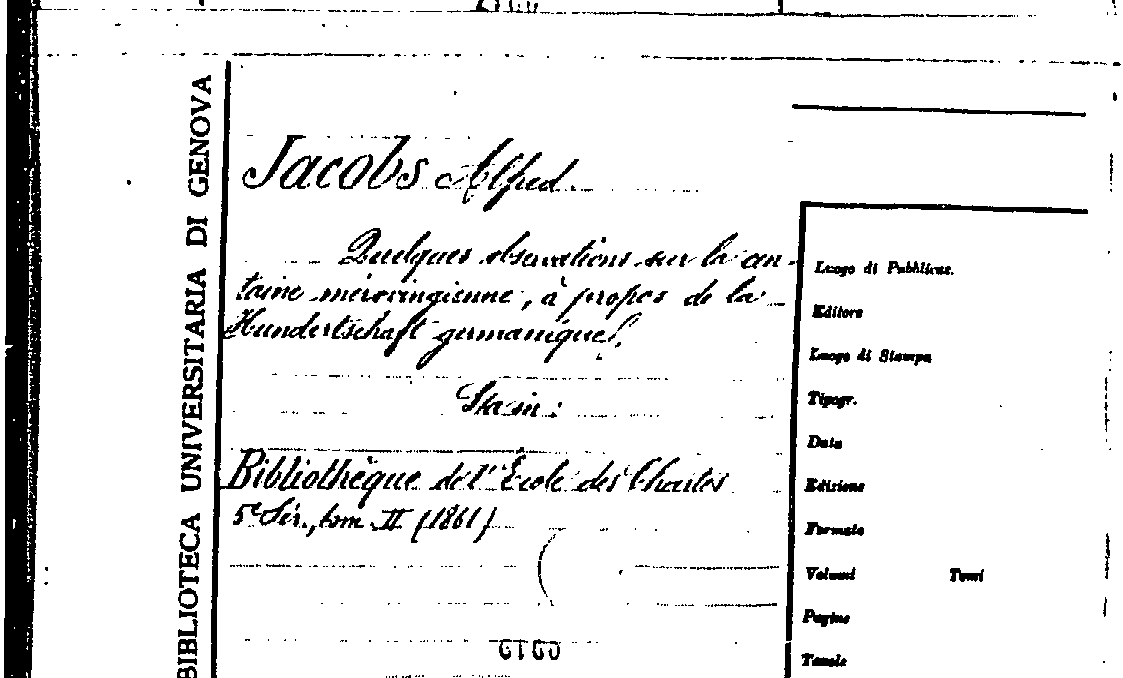 BIBLIOTECA UNIVERSITARIA DI GENOVA
Jacobs Alfred.
Quelques observations sur la cen-
taine mérovingienne, à propos de la
Hundertschaft germanique.
Sta in:
Bibliothèque de l'École des Chartes
5e Sér., tom. II (1861)
Luogo di Pubblicaz.
Editore
Luogo di Stampa
Tipogr.
Data
Edizione
Formato
Volumi Tomi
Pagine
Tavole